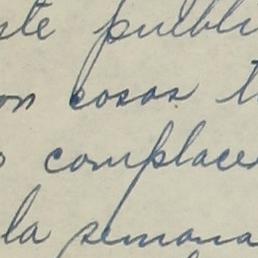 ste pueblo
on cosas t
o complacer
la semana